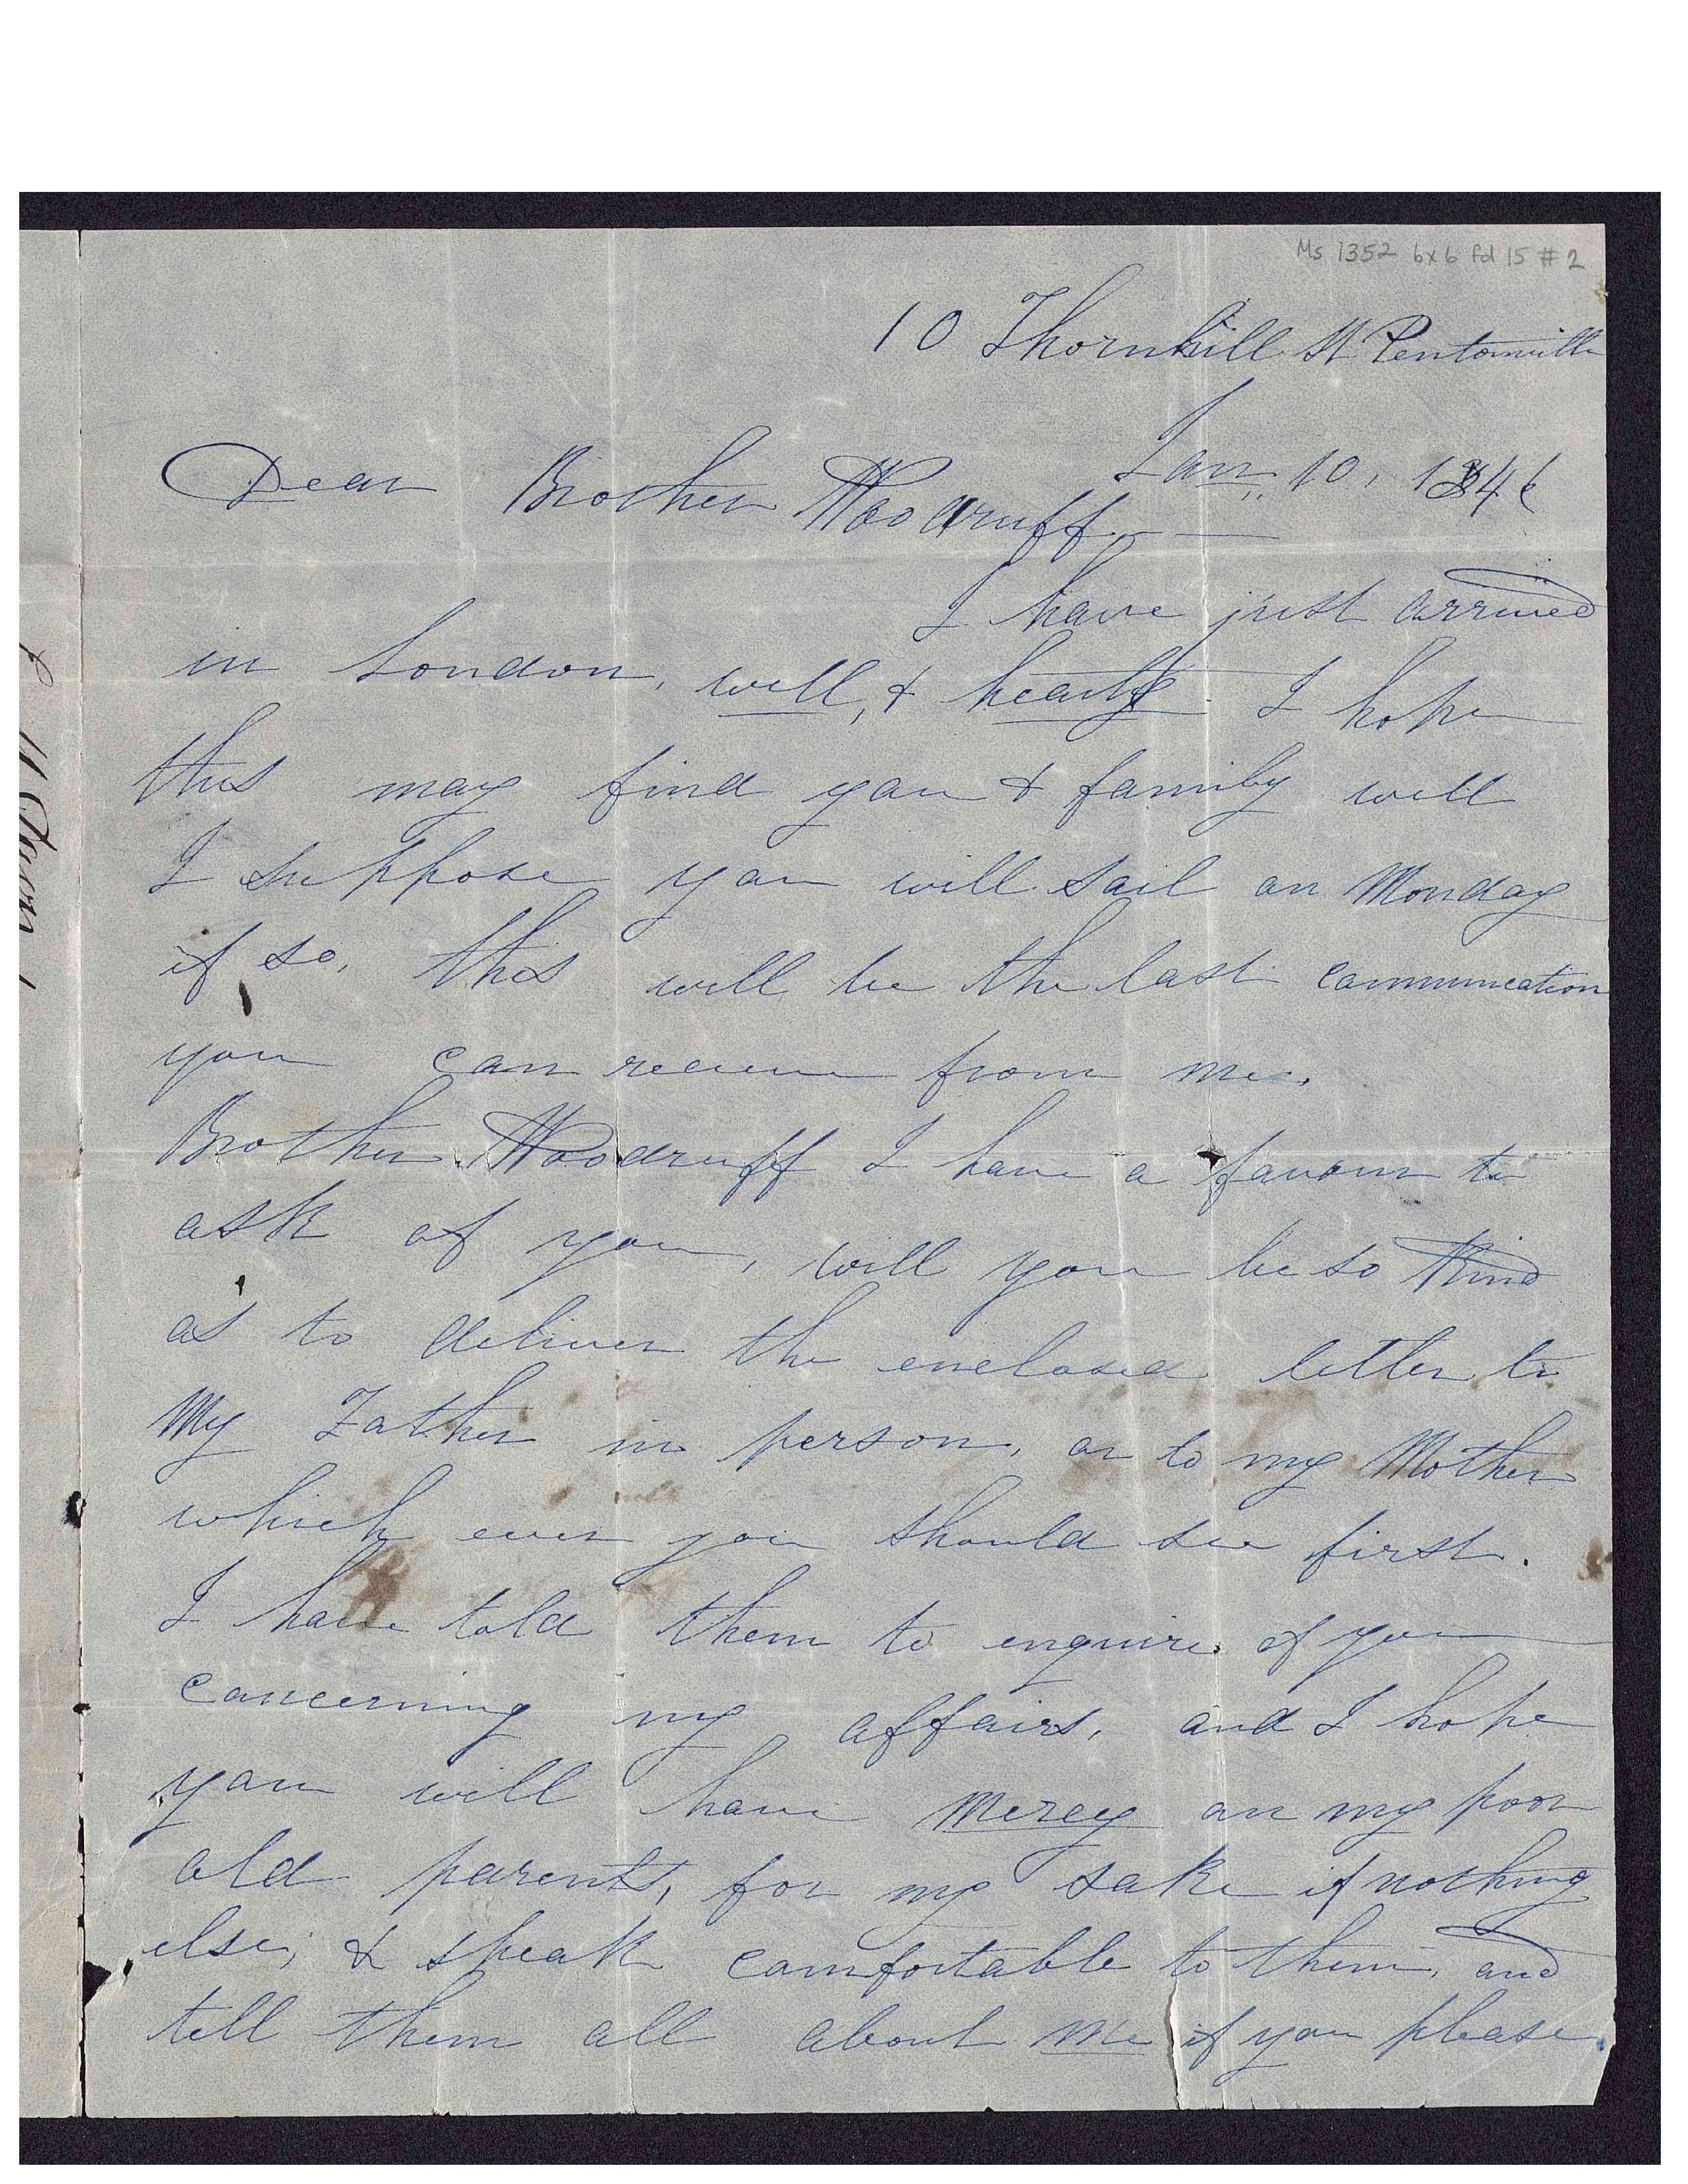 Ms 1352 bx 6 fd 15 # 2
10 Thornhill St Pentonville
Jan 10, 1846
Dear Brother Woodruff
I have just arrived
in London, well, & hearty. I hope
this may find you & family well
I suppose you will sail on Monday
if so, this will be the last communication
you can receive from me.
Brother Woodruff I have a favour to
ask of you, will you be so kind
as to deliver the enclosed letter to
My Father in person, or to my Mother
which ever you should see first.
I have told them to enquire of you
concerning my affairs, and I hope
you will have mercy on my poor
old parents, for my sake if nothing
else, & speak comfortable to them, and
tell them all about me if you please